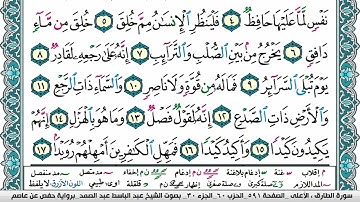 نَفْسٍ لَّمَّا عَلَيْهَا حَافِظٌ ٤ فَلْيَنظُرِ الْإِنسَانُ مِمَّ خُلِقَ ٥ خُلِقَ مِن مَّاءٍ
دَافِقٍ ٦ يَخْرُجُ مِن بَيْنِ الصُّلْبِ وَالتَّرَائِبِ ٧ إِنَّهُ عَلَى رَجْعِهِ لَقَادِرٌ ٨
يَوْمَ تُبْلَى السَّرَائِرُ ٩ فَمَا لَهُ مِن قُوَّةٍ وَلَا نَاصِرٍ ١٠ وَالسَّمَاءِ ذَاتِ الرَّجْعِ ١١
وَالْأَرْضِ ذَاتِ الصَّدْعِ ١٢ إِنَّهُ لَقَوْلٌ فَصْلٌ ١٣ وَمَا هُوَ بِالْهَزْلِ ١٤ إِنَّهُمْ
يَكِيدُونَ كَيْدًا ١٥ وَأَكِيدُ كَيْدًا ١٦ فَمَهِّلِ الْكَافِرِينَ أَمْهِلْهُمْ رُوَيْدًا ١٧
سورة الطارق ، الأعلى ، الصفحة ٥٩١ ، الحزب ٦٠ ، الجزء ٣٠ - بصوت الشيخ عبد الباسط عبد الصمد - برواية حفص عن عاصم